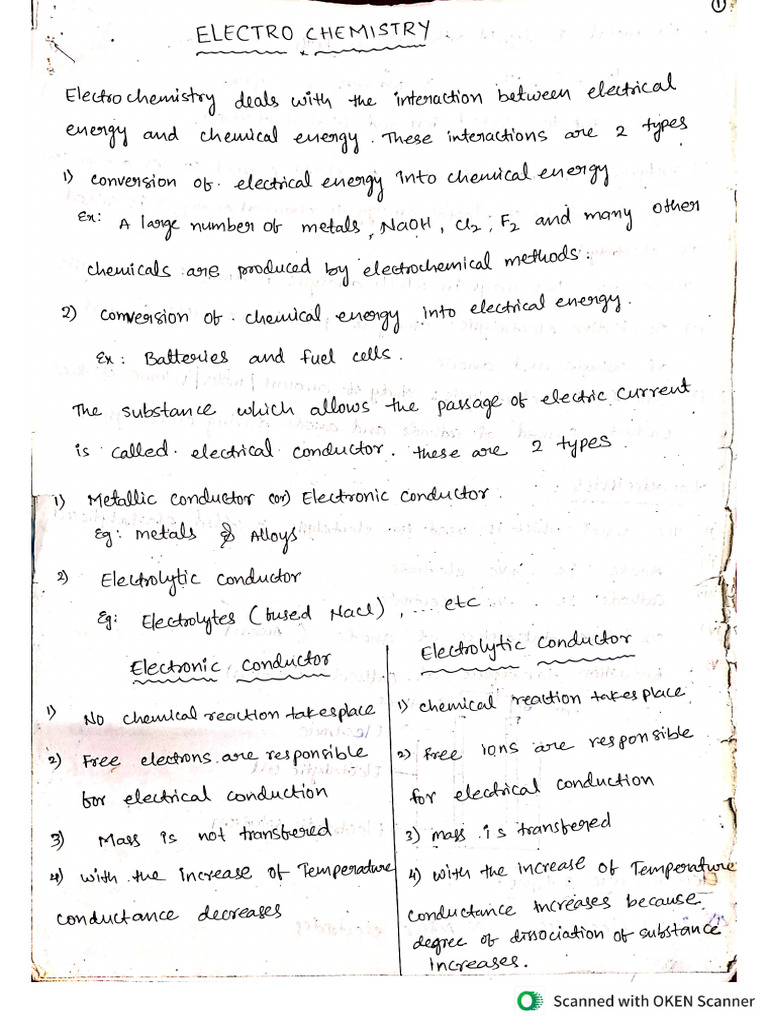 1
ELECTRO CHEMISTRY
Electrochemistry deals with the interaction between electrical
energy and chemical energy. These interactions are 2 types
1) conversion of electrical energy into chemical energy
Ex: A large number of metals, NaOH, Cl2, F2 and many other
chemicals are produced by electrochemical methods.
2) conversion of chemical energy into electrical energy.
Ex: Batteries and fuel cells.
The substance which allows the passage of electric current
is called electrical conductor. these are 2 types.
1) Metallic conductor (or) Electronic conductor.
Eg: metals & Alloys
2) Electrolytic conductor
Eg: Electrolytes (fused Nacl), ... etc
Electronic conductor
1) No chemical reaction takesplace
2) Free electrons are responsible
for electrical conduction
3) Mass is not transfered
4) with the increase of Temperature
conductance decreases
Electrolytic conductor
1) chemical reaction takesplace
2) free ions are responsible
for electrical conduction
3) mass is transfered
4) with the increase of Temperature
conductance increases because
degree of dissociation of substance
increases.
Scanned with OKEN Scanner